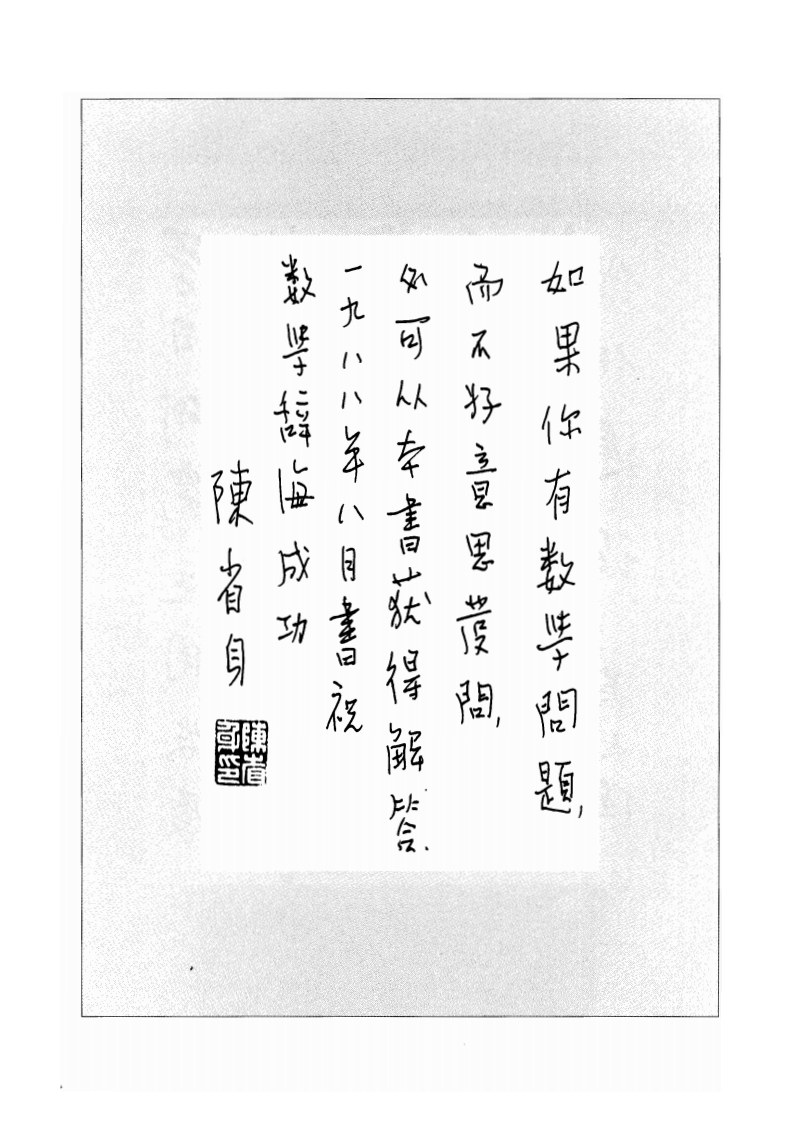 如果你有数学問題,
而不好意思发問,
必可以本書获得解答.
一九八八年八月書祝
数学辞海成功
陳省身
陳省身印